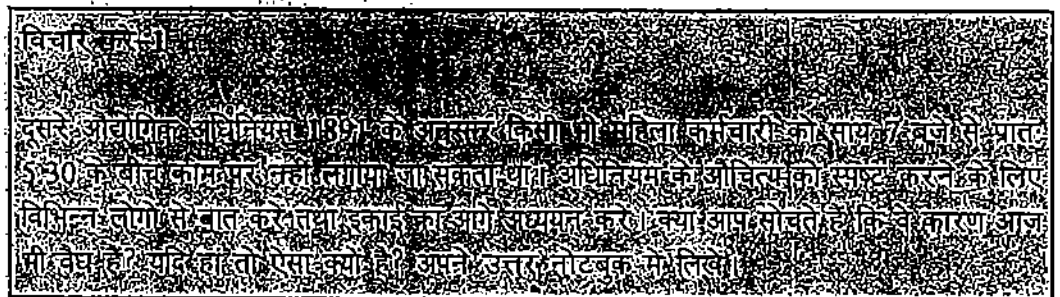 विचार करें-1
दूसरे औद्योगिक अधिनियम 1891 के अनुसार किसी भी महिला कर्मचारी को सायं 7 बजे से प्रातः
5.30 के बीच काम पर नहीं लगाया जा सकता था। अधिनियम के औचित्य को स्पष्ट करने के लिए
विभिन्न लोगों से बात करें तथा इकाई का आगे अध्ययन करें। क्या आप सोचते हैं कि वे कारण आज
भी वैध हैं? यदि हां तो ऐसा क्यों है? अपने उत्तर नोटबुक में लिखें।